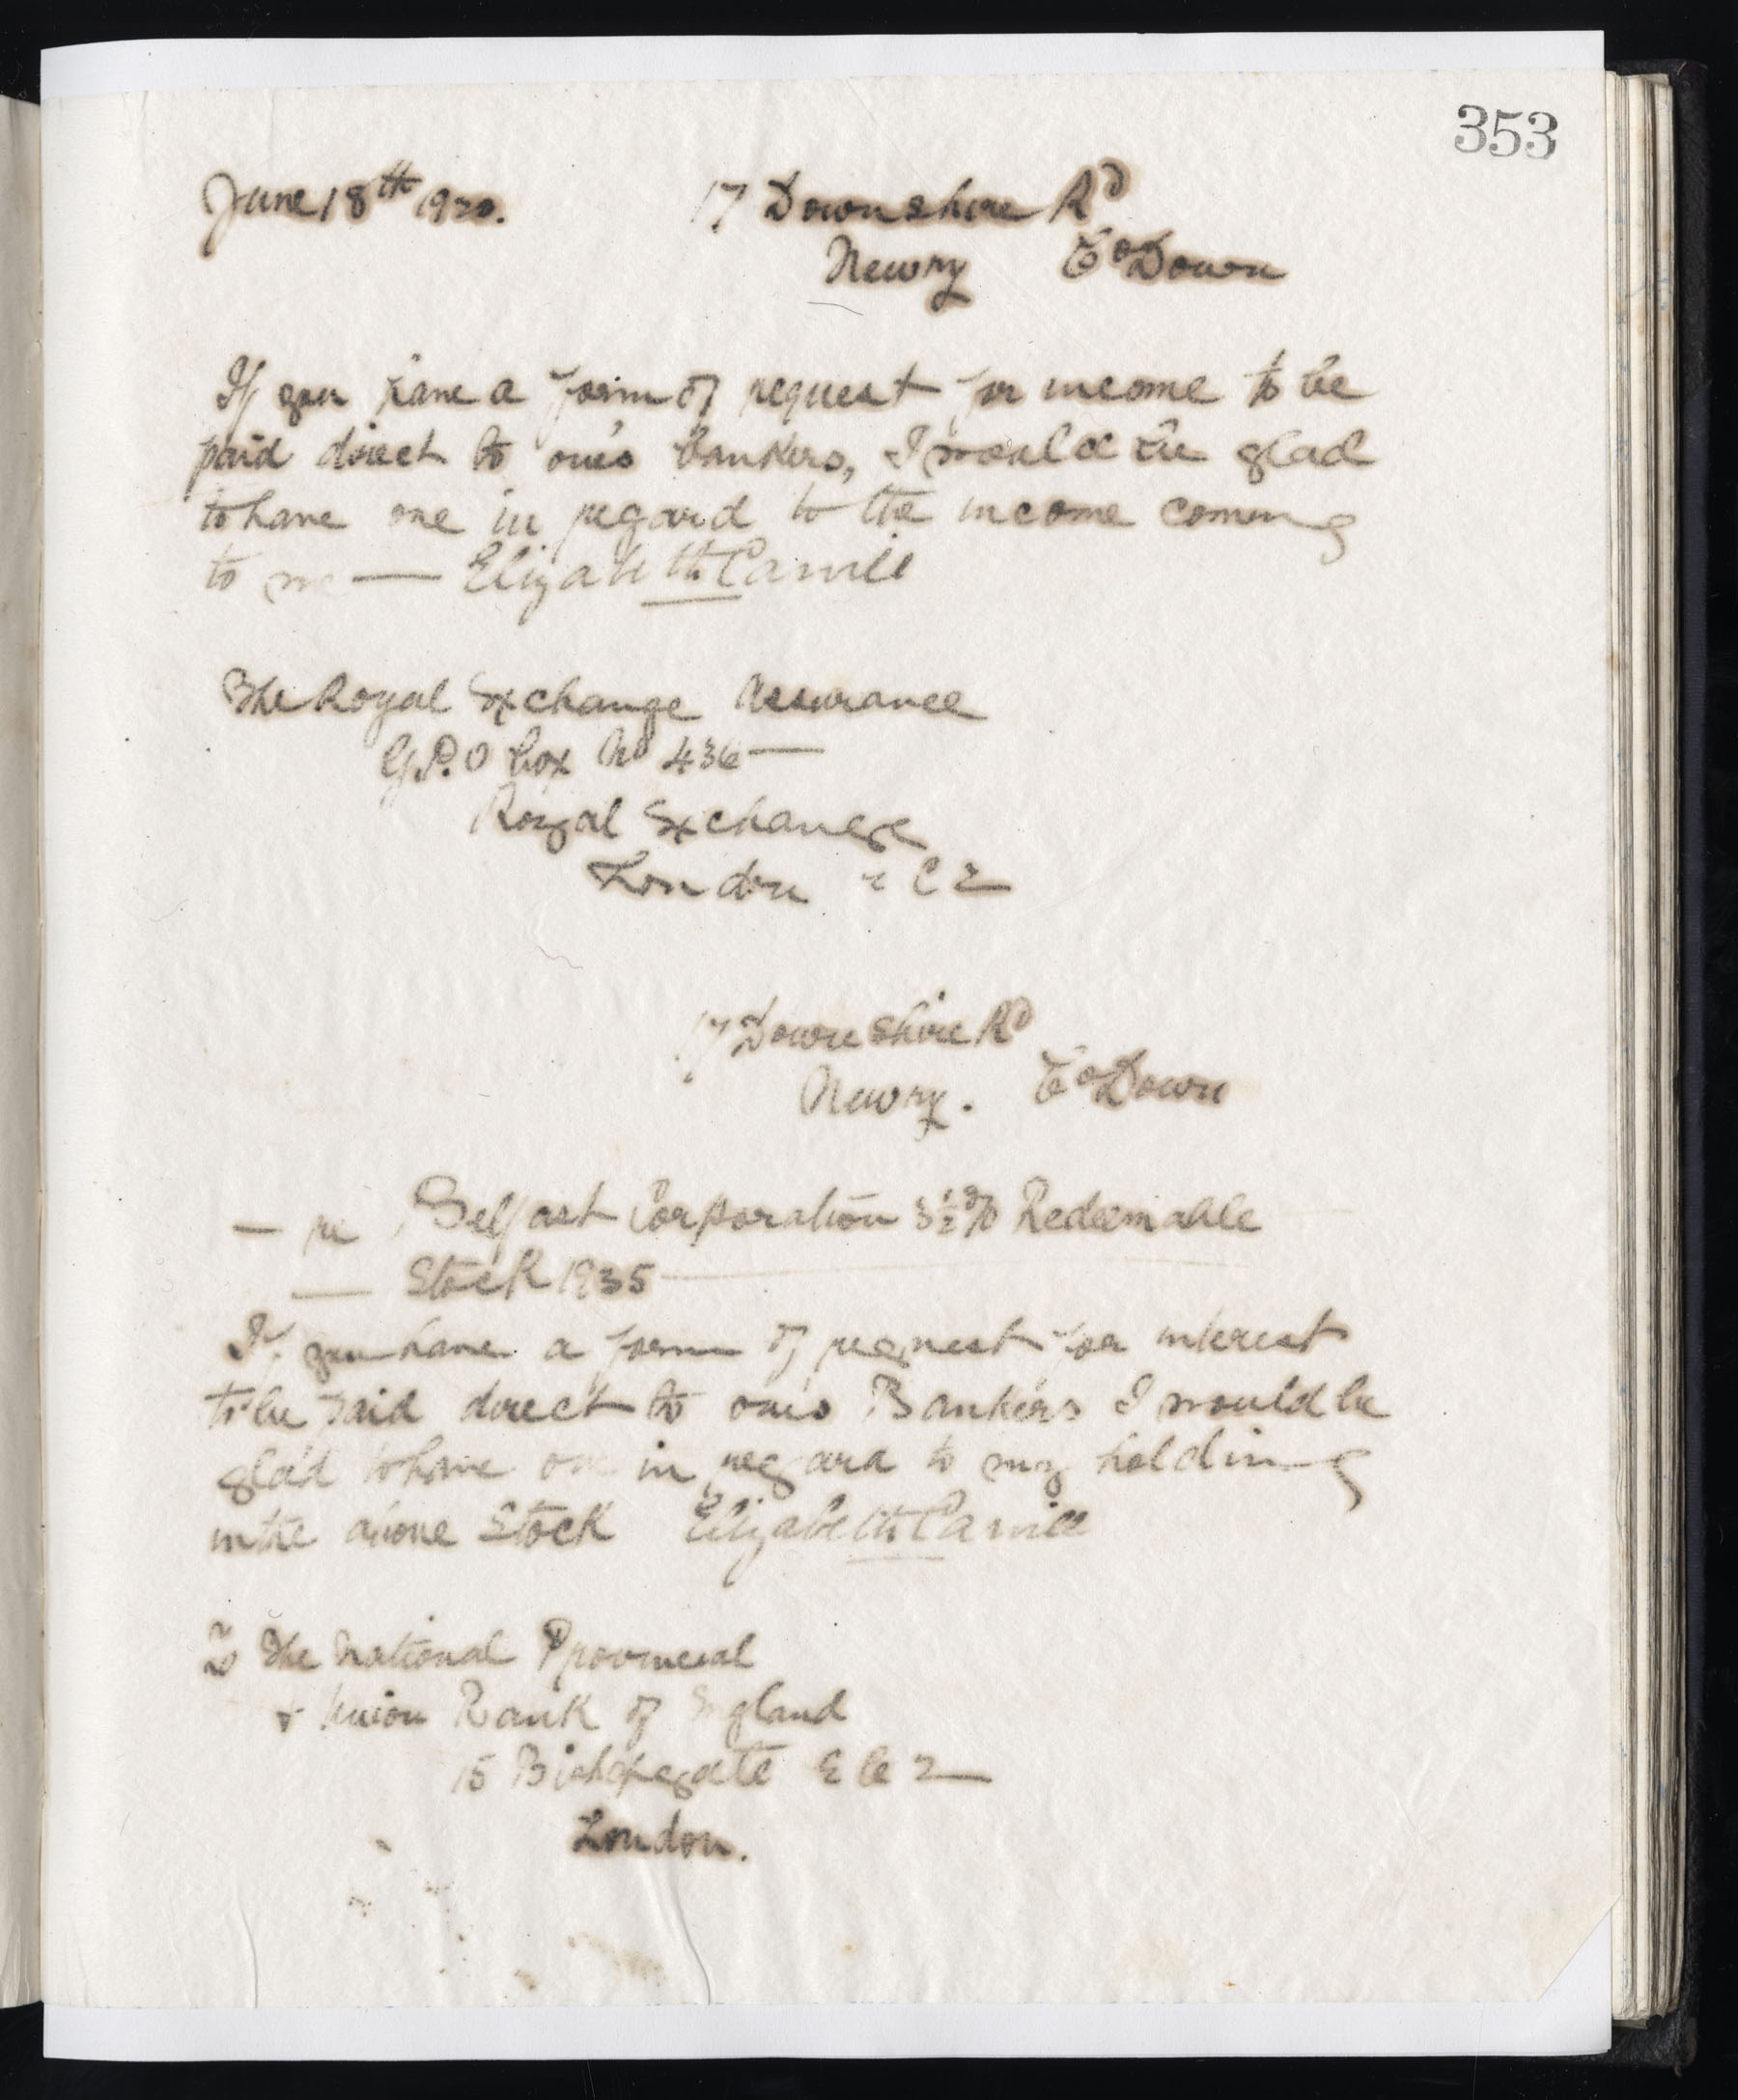 353
June 18th 1920. 17 Downshire Rd
Newry Co Down
If you have a form of request for income to be
paid direct to one's bankers, I would be glad
to have one in regard to the income coming
to me — Elizabeth Carvill
The Royal Exchange Assurance
G.P.O box No 436 —
Royal Exchange
London E C 2
17 Downshire Rd
Newry. Co Down
— re Belfast Corporation 3½% Redeemable
— Stock 1935 —
If you have a form of request for interest
to be paid direct to one's Bankers I would be
glad to have one in regard to my holding
in the above Stock Elizabeth Carvill
To The National Provincial
& Union Bank of England
15 Bishopsgate E C 2 —
London.